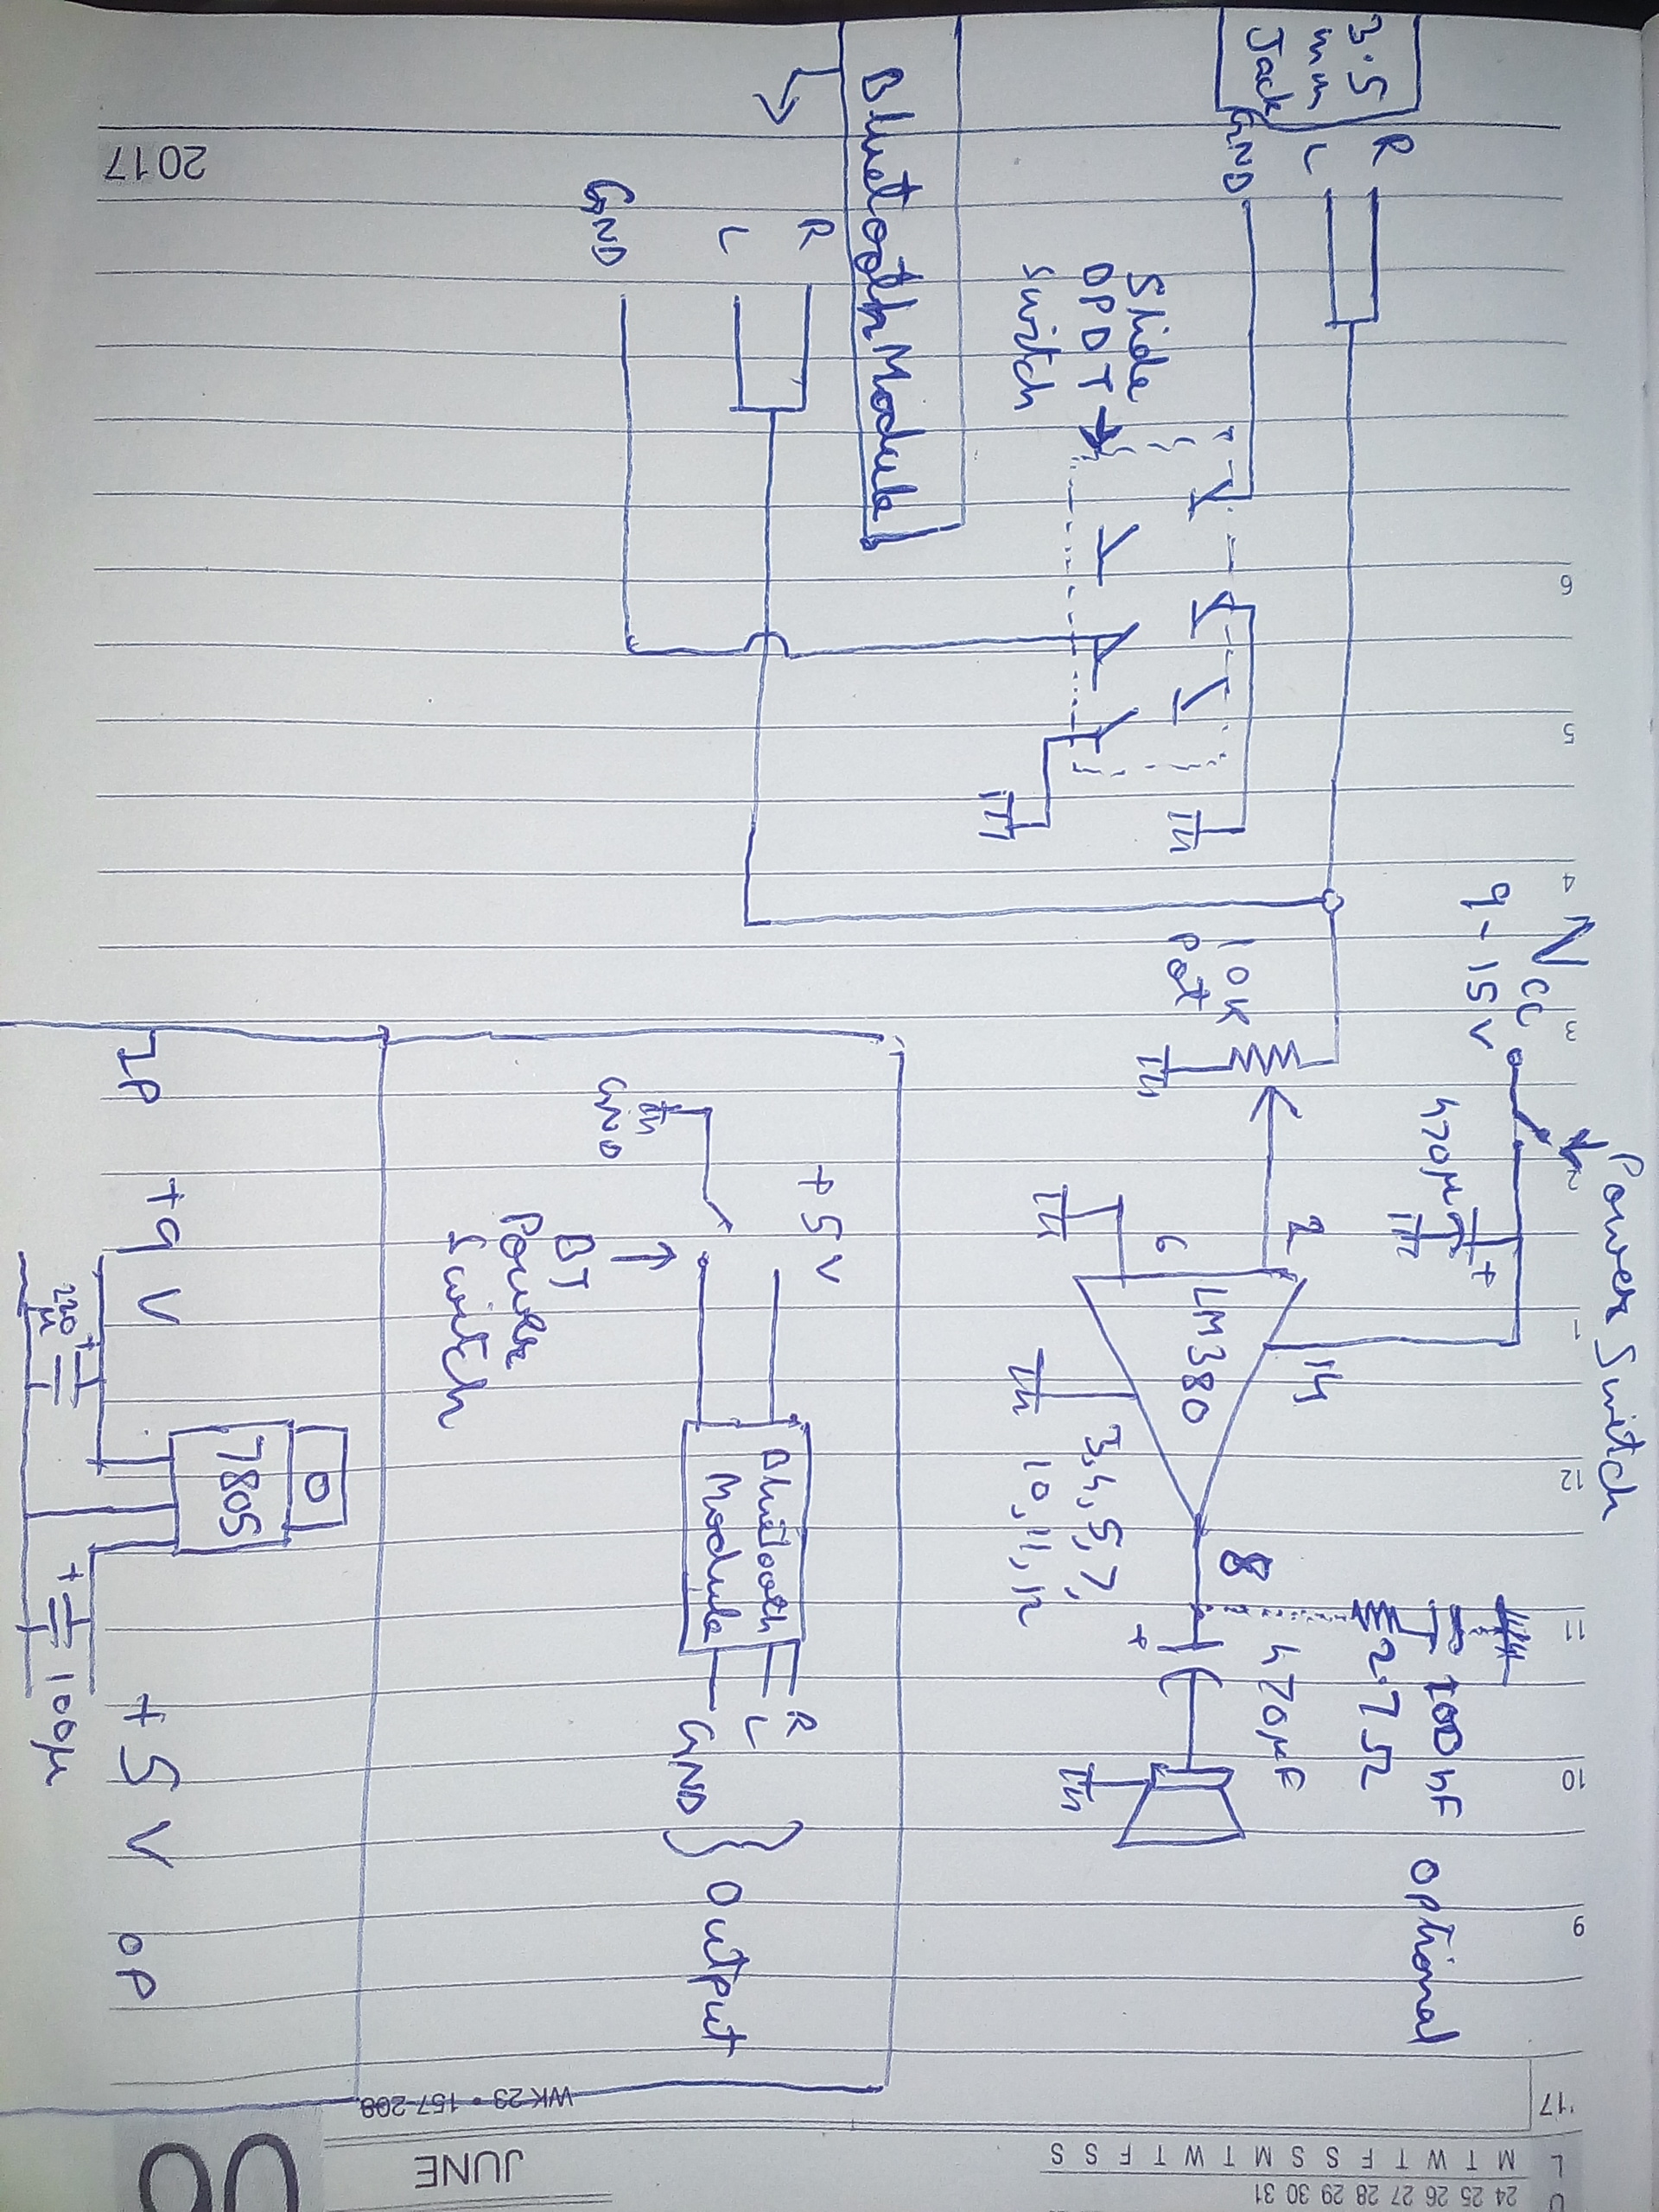 3.5
mm
Jack
R
L
GND
Slide
DPDT
switch
Bluetooth Module
R
L
GND
Vcc
9-15V
Power Switch
470µ
+
10K
Pot
2
6
LM380
14
3,4,5,7,
10,11,12
8
+
470µF
2.7Ω
100nF
optional
+5V
GND
BT
Power
Switch
Bluetooth
Module
R
L
GND
Output
IP
+9V
220
µ
+
7805
+
100µ
+5V
OP
2017
6
5
4
3
2
1
12
11
10
9
WK 23 • 157-208
JUNE
06
'17
M T W T F S S M T W T F S S
24 25 26 27 28 29 30 31